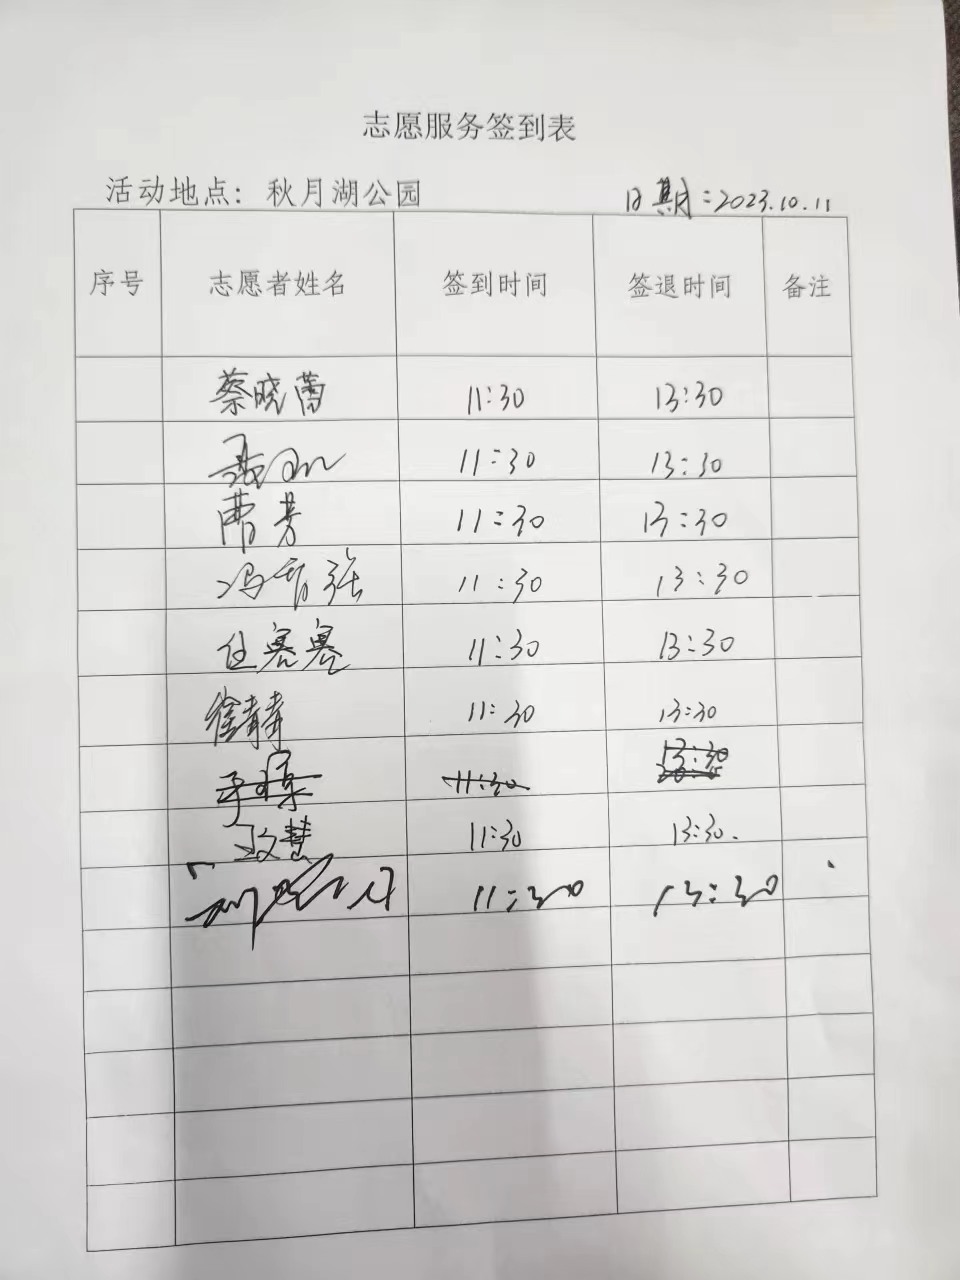 志愿服务签到表
活动地点：秋月湖公园 日期：2023.10.11
序号 志愿者姓名 签到时间 签退时间 备注
蔡晓蕾 11:30 13:30
11:30 13:30
曹芳 11:30 13:30
冯 强 11:30 13:30
任寒寒 11:30 13:30
徐静 11:30 13:30
11:30 13:30
慧 11:30 13:30.
11:30 13:30